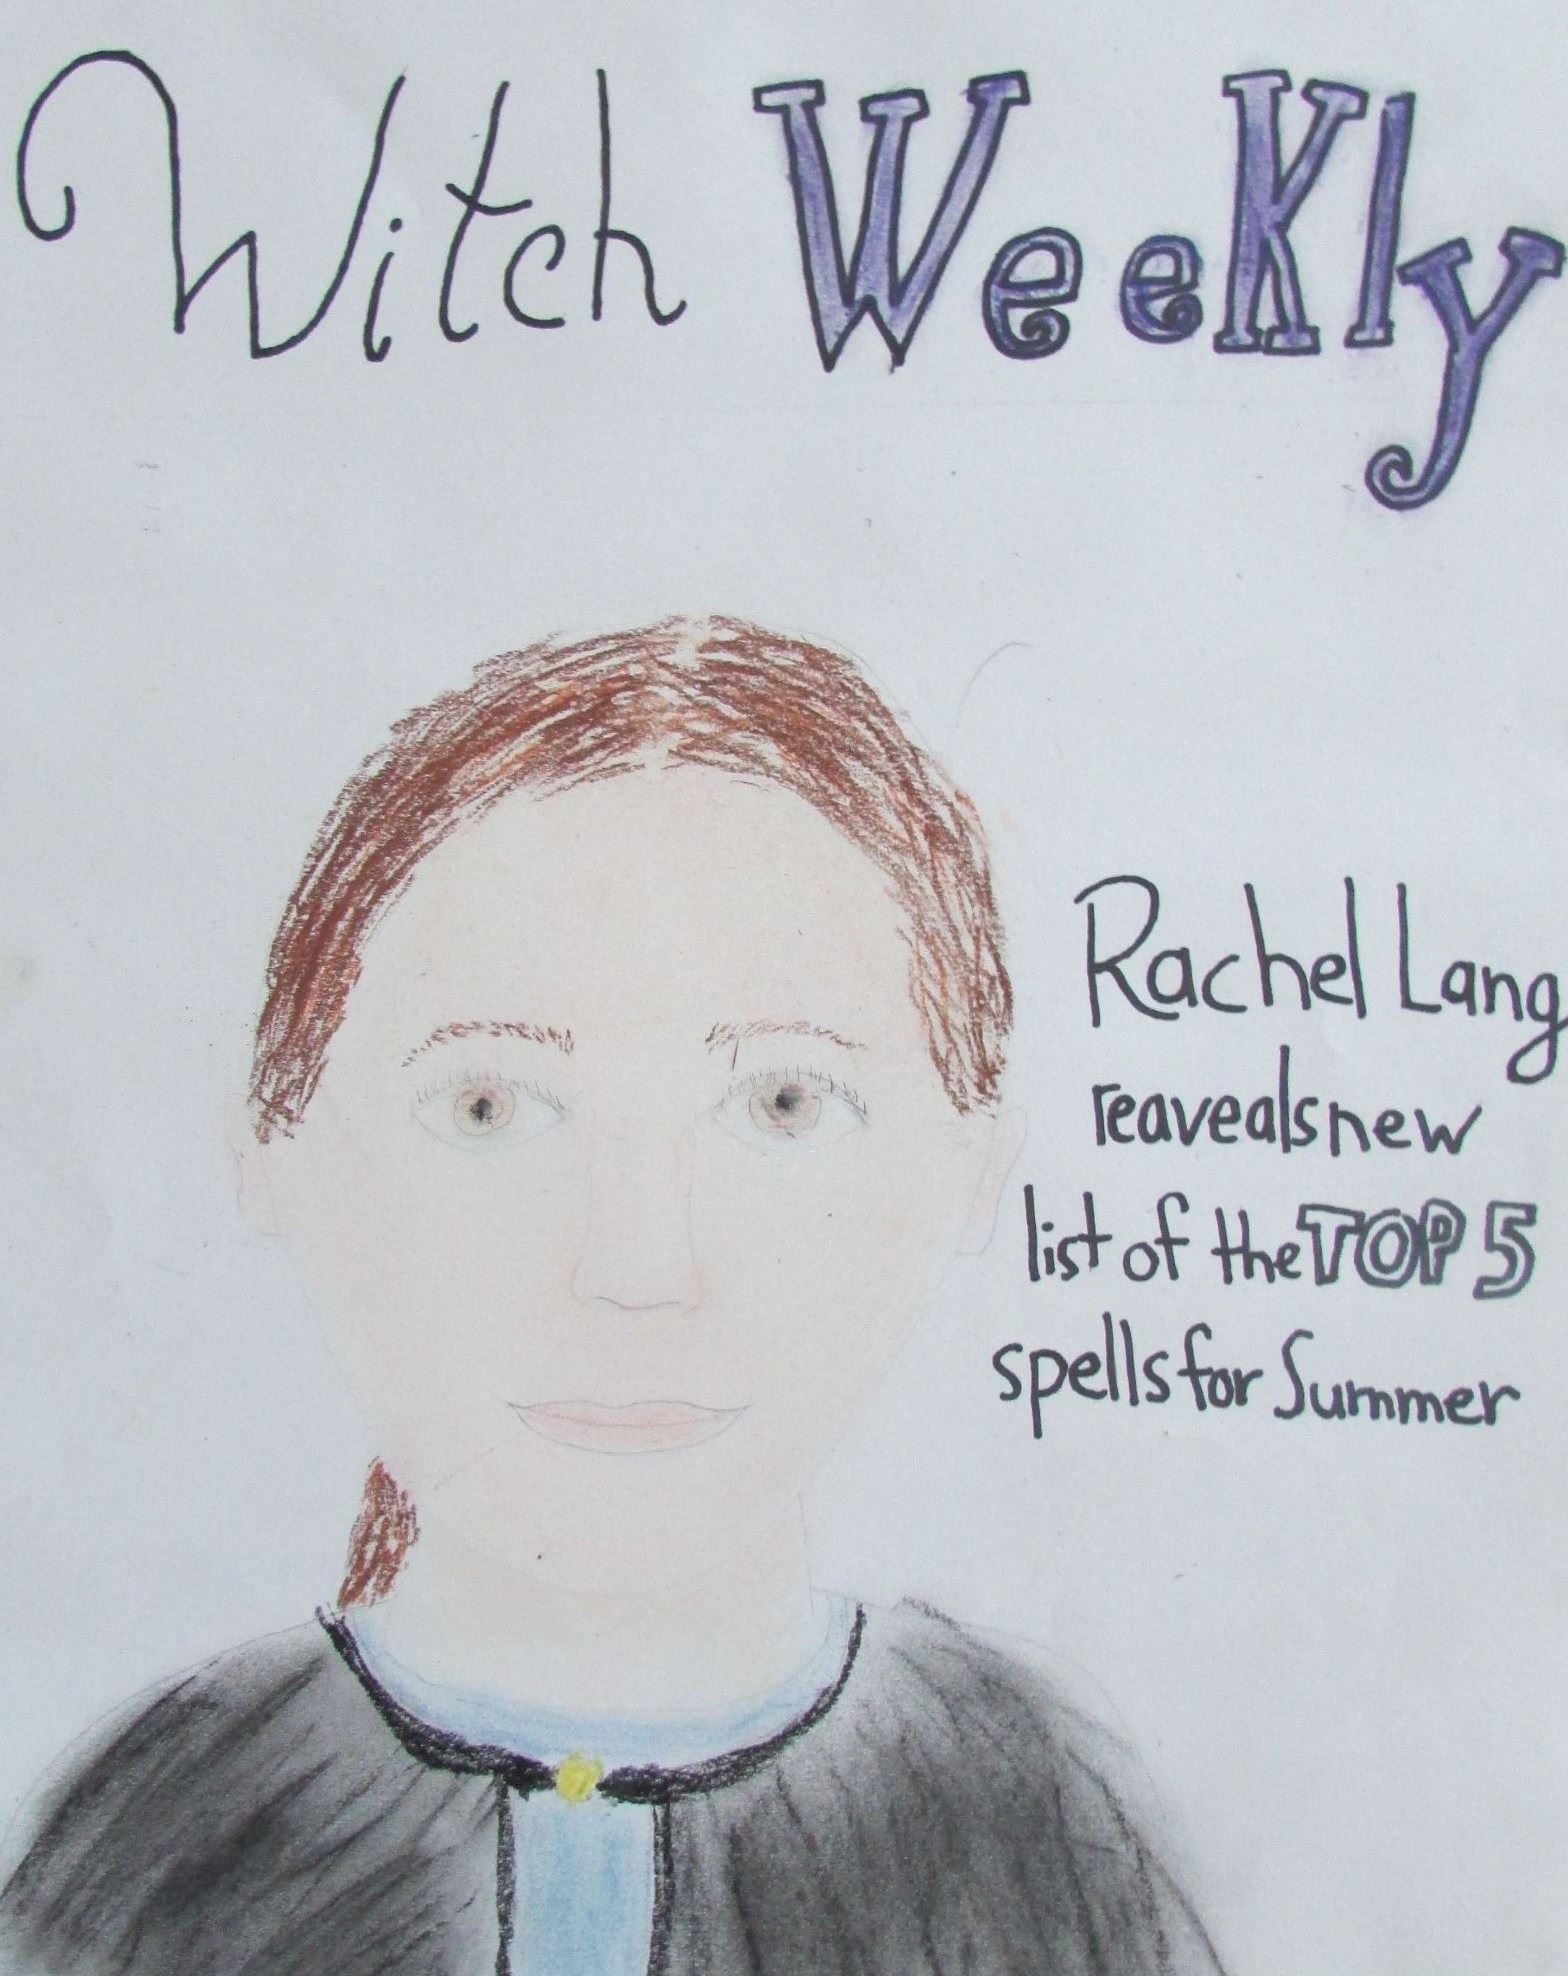 Witch Weekly
Rachel Lang
reaveals new
list of the TOP 5
spells for Summer